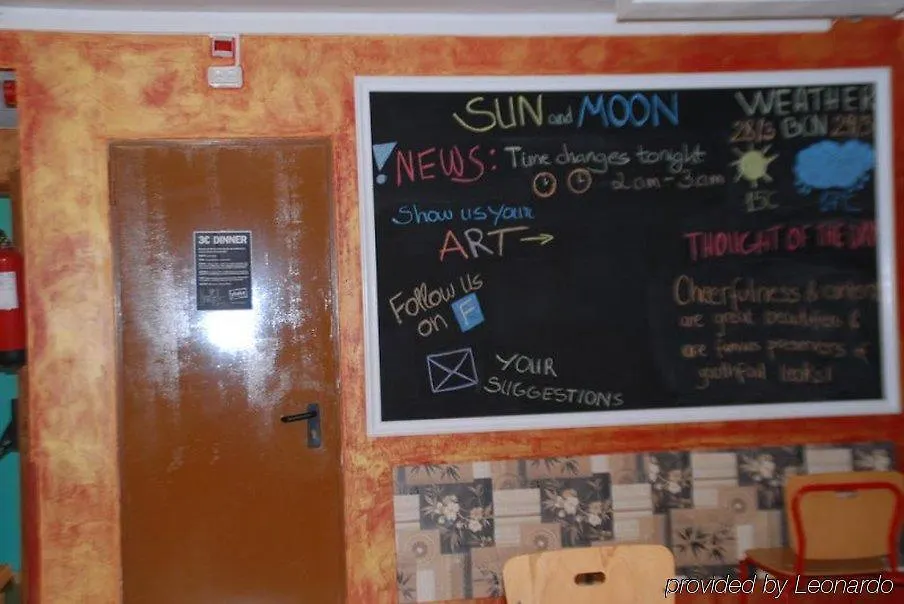 SUN and MOON
! NEWS: Time changes tonight
2am - 3am
Show us your
ART →
Follow us
on F
YOUR
SUGGESTIONS
WEATHER
28/3 BCN 29/3
15C
THOUGHT OF THE DAY
Cheerfulness &
are great beautifiers &
are famous preservers of
youthful looks!!
3C DINNER
provided by Leonardo